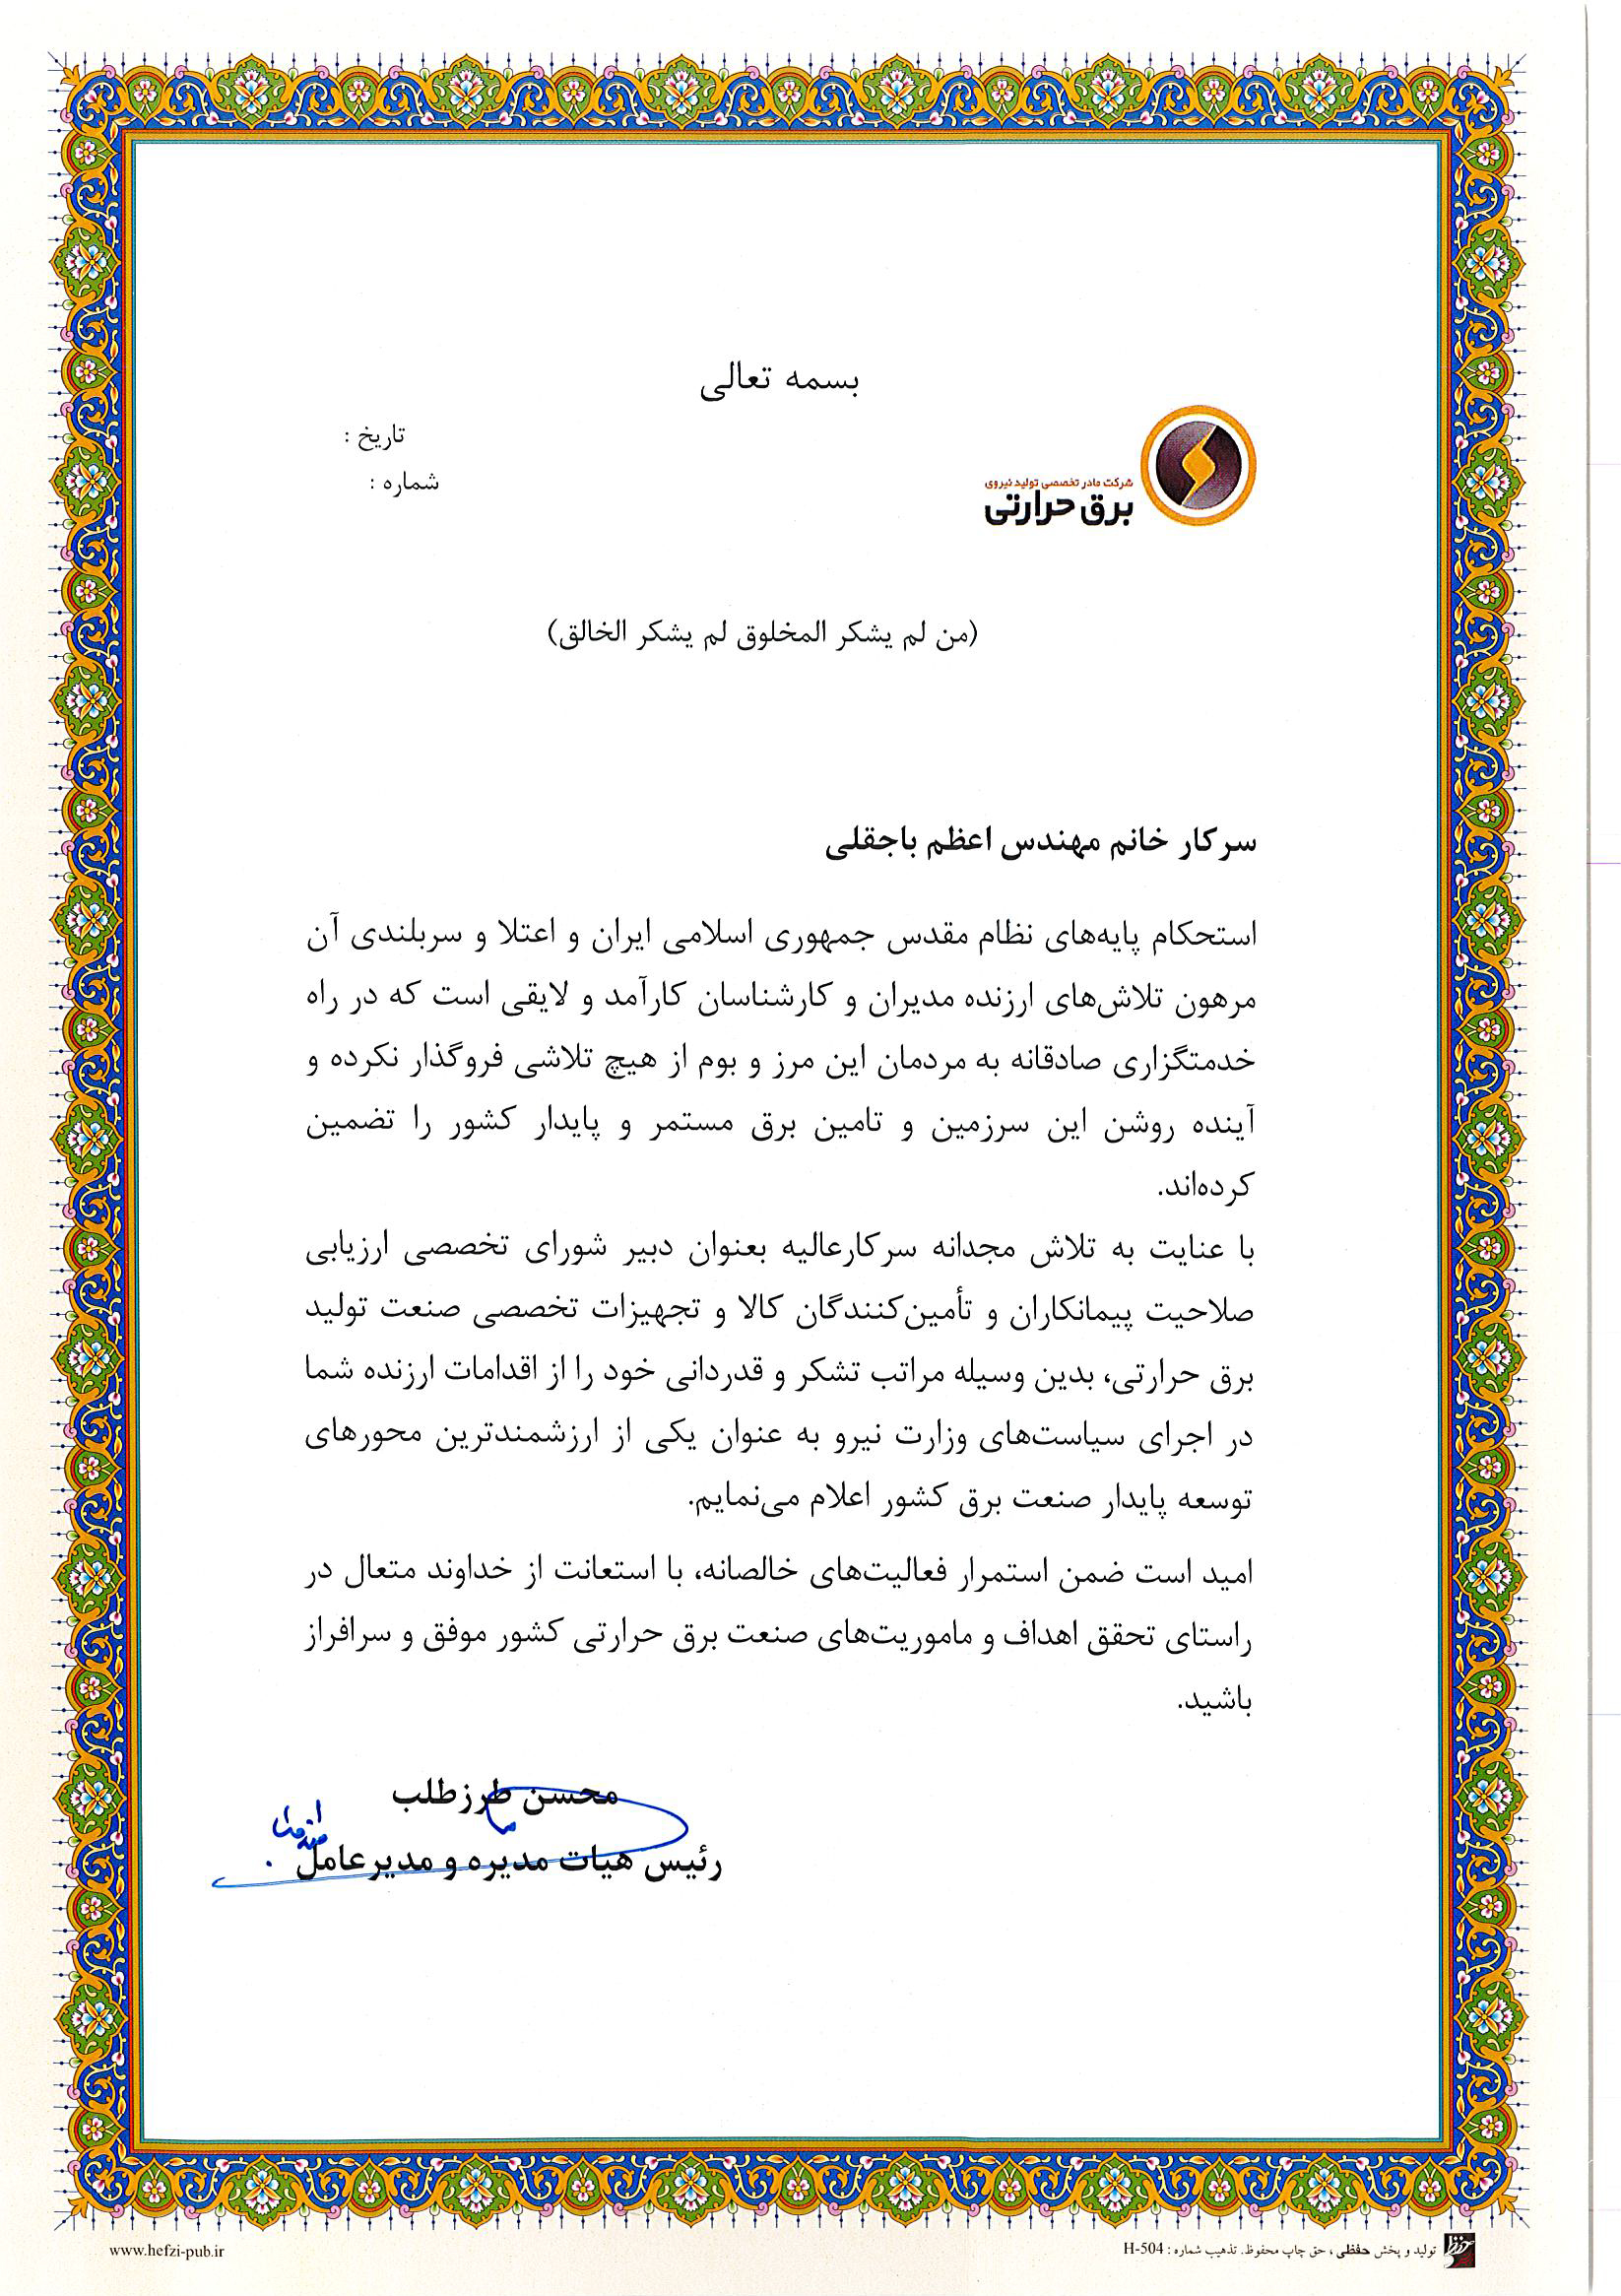 بسمه تعالی
تاریخ :
شماره :
شرکت مادر تخصصی تولید نیروی
برق حرارتی
(من لم یشکر المخلوق لم یشکر الخالق)
سرکار خانم مهندس اعظم باجقلی
استحکام پایه‌های نظام مقدس جمهوری اسلامی ایران و اعتلا و سربلندی آن
مرهون تلاش‌های ارزنده مدیران و کارشناسان کارآمد و لایقی است که در راه
خدمتگزاری صادقانه به مردمان این مرز و بوم از هیچ تلاشی فروگذار نکرده و
آینده روشن این سرزمین و تامین برق مستمر و پایدار کشور را تضمین
کرده‌اند.
با عنایت به تلاش مجدانه سرکارعالیه بعنوان دبیر شورای تخصصی ارزیابی
صلاحیت پیمانکاران و تأمین‌کنندگان کالا و تجهیزات تخصصی صنعت تولید
برق حرارتی، بدین وسیله مراتب تشکر و قدردانی خود را از اقدامات ارزنده شما
در اجرای سیاست‌های وزارت نیرو به عنوان یکی از ارزشمندترین محورهای
توسعه پایدار صنعت برق کشور اعلام می‌نمایم.
امید است ضمن استمرار فعالیت‌های خالصانه، با استعانت از خداوند متعال در
راستای تحقق اهداف و ماموریت‌های صنعت برق حرارتی کشور موفق و سرافراز
باشید.
محسن طرزطلب
رئیس هیات مدیره و مدیرعامل
تولید و پخش حفظی ، حق چاپ محفوظ. تذهیب شماره : H-504
www.hefzi-pub.ir